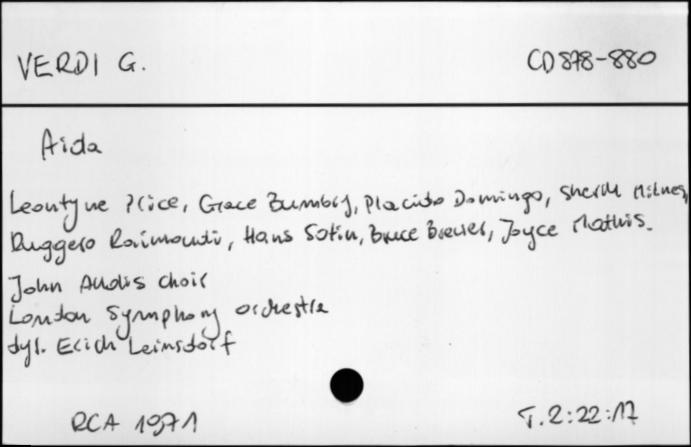 VERDI G.
CD 878-880
Aida
Leontyne Price, Grace Bumbry, Placido Domingo, Sherill Milnes,
Ruggero Raimondi, Hans Sotin, Bruce Brewer, Joyce Mathis.
John Alldis choir
London Symphony orchestra
dyr. Erich Leinsdorf
RCA 1971
T. 2:22:17